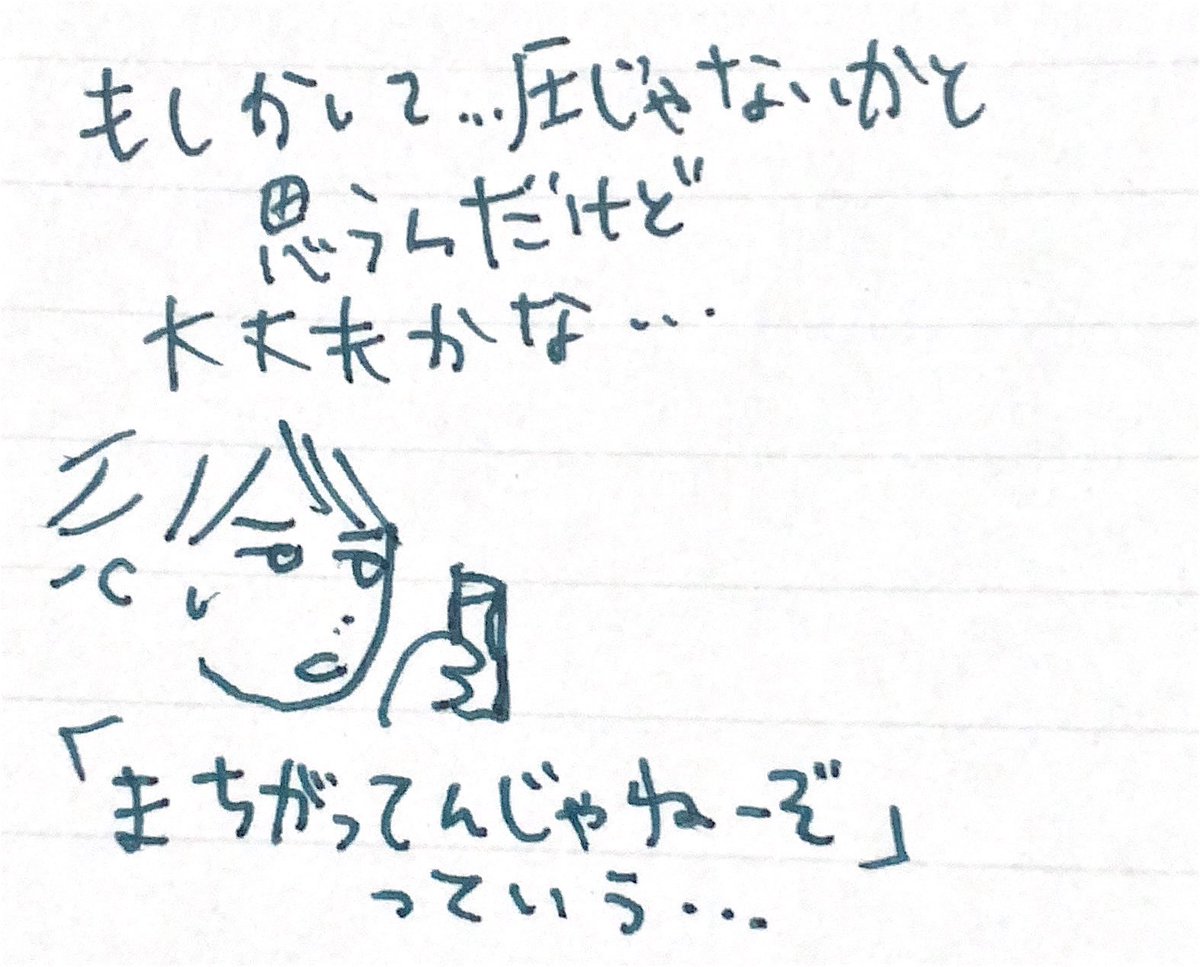 もしかして…圧じゃないかと
思うんだけど
大丈夫かな…
「まちがってんじゃねーぞ」
っていう…